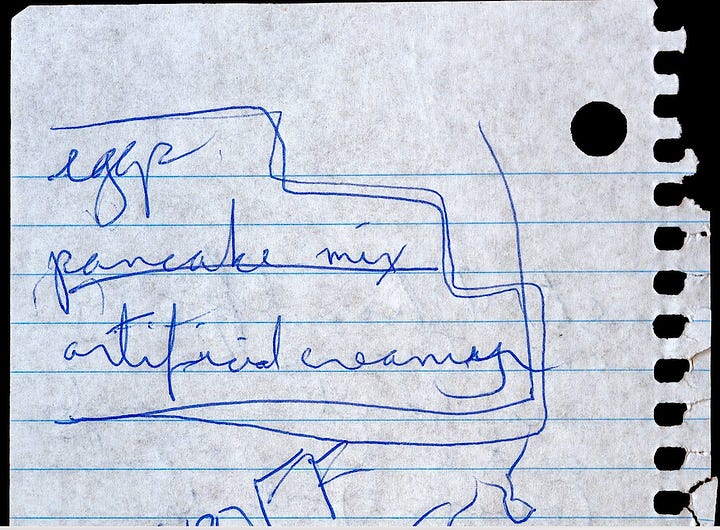 eggs
pancake mix
artificial creamer